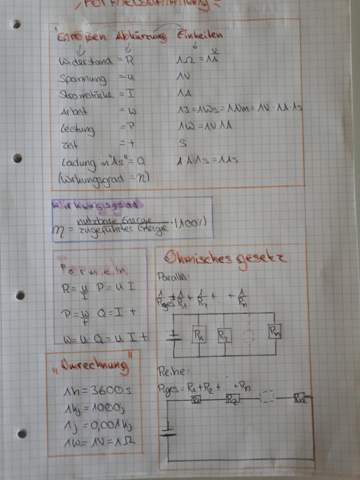 Formelsammlung
Größen Abkürzung Einheiten
Widerstand = R 1Ω = 1
Spannung = u 1V
Stromstärke = I 1A
Arbeit = W 1J = 1Ws = 1Nm = 1V·1A·1s
Leistung = P 1W = 1V 1A
Zeit = t S
Ladung = Q 1A 1s = 1As
(Wirkungsgrad = η)
Wirkungsgrad
η = nutzbare Energie / zugeführte Energie · (100%)
Formeln
R = u/I P = u I
P = W/t Q = I t
W = u Q = u I t
"Umrechnung"
1h = 3600s
1kj = 1000j
1j = 0,001kj
1W = 1V = 1Ω
Ohmisches gesetz
Parallel:
1/Rges = 1/R1 + 1/R2 + + 1/Rn
R1 R2 Rn
Reihe:
Rges = R1 + R2 + ·Rn
R1 R2 Rn